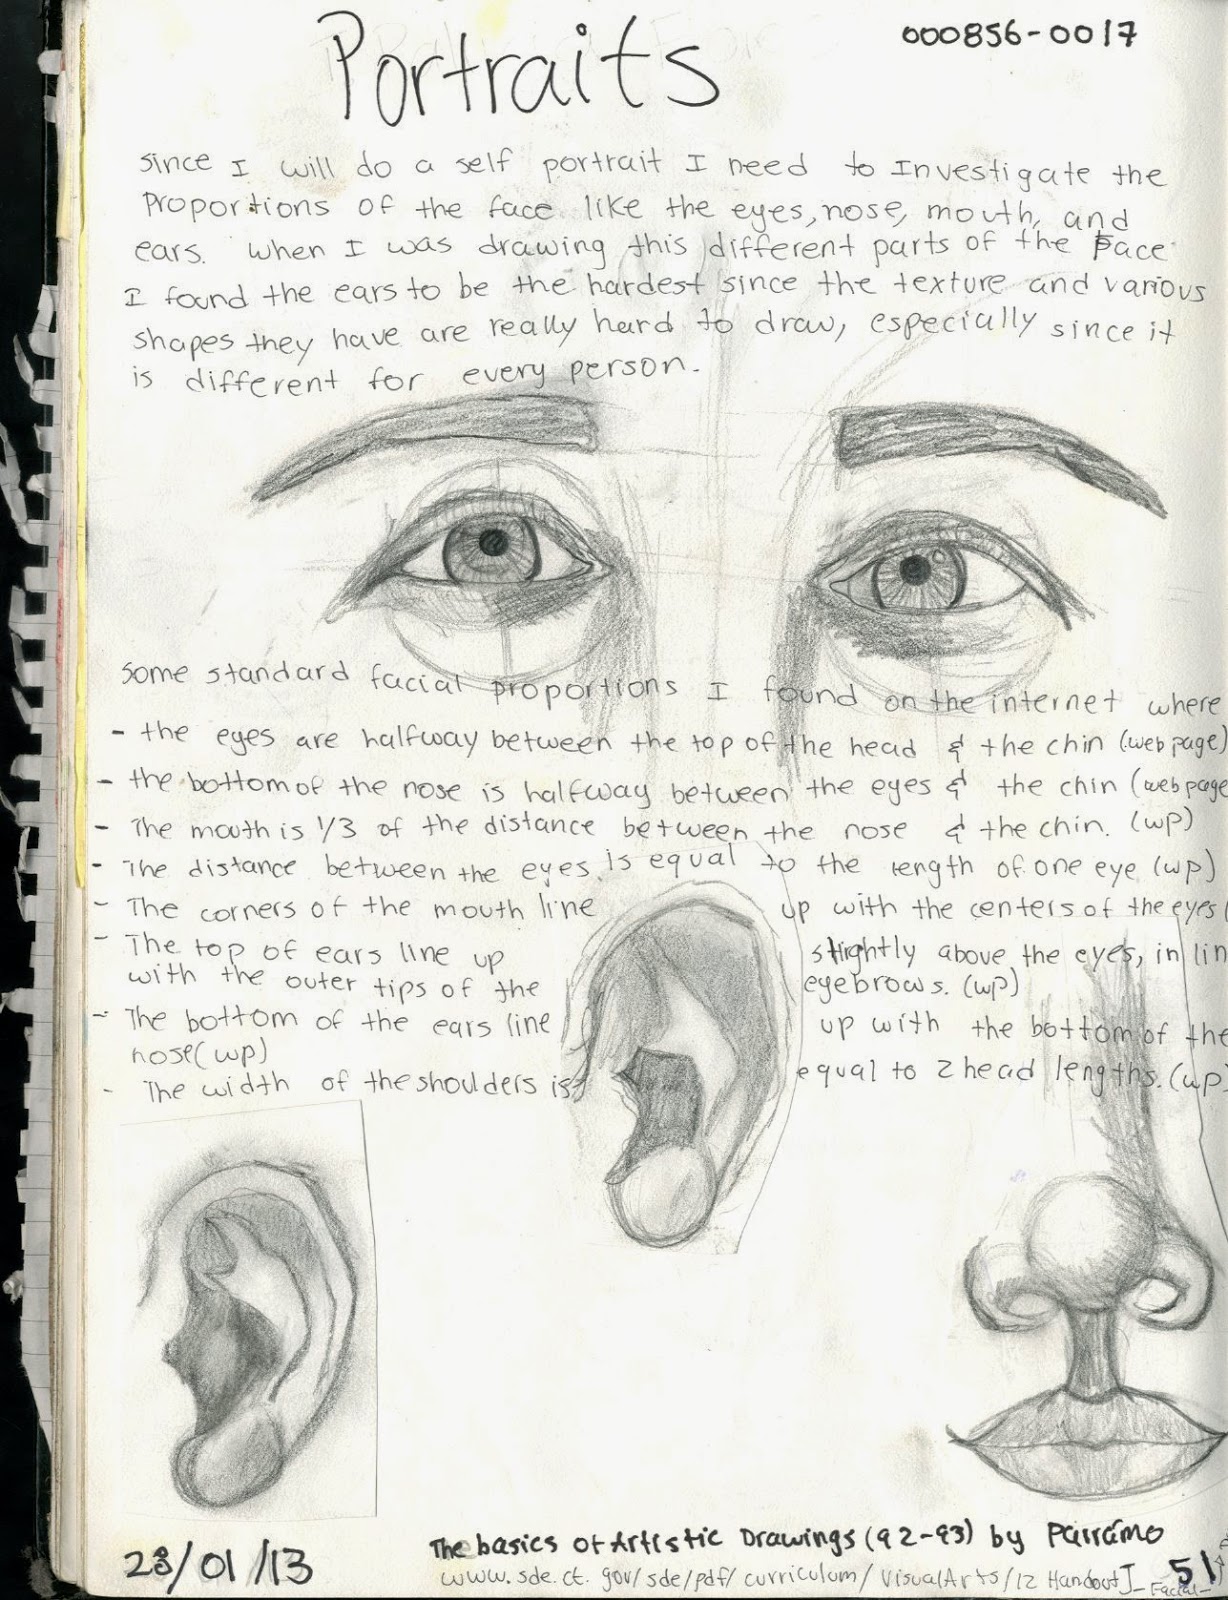 Portraits
000856-0017
since I will do a self portrait I need to Investigate the
Proportions of the face like the eyes, nose, mouth, and
ears. When I was drawing this different parts of the Face
I found the ears to be the hardest since the texture and various
shapes they have are really hard to draw, especially since it
is different for every person.
Some standard facial proportions I found on the internet where
- the eyes are halfway between the top of the head & the chin (web page)
- the bottom of the nose is halfway between the eyes & the chin (web page
- The mouth is 1/3 of the distance between the nose & the chin. (wp)
- The distance between the eyes is equal to the length of one eye (wp)
- The corners of the mouth line up with the centers of the eyes (
- The top of ears line up slightly above the eyes, in lin
with the outer tips of the eyebrows. (wp)
- The bottom of the ears line up with the bottom of the
nose (wp)
- The width of the shoulders is equal to 2 head lengths. (wp)
28/01/13
The basics of Artistic Drawings (92-93) by Parramo
www.sde.ct.gov/sde/pdf/curriculum/VisualArts/12 HandoutJ_Facial_
51